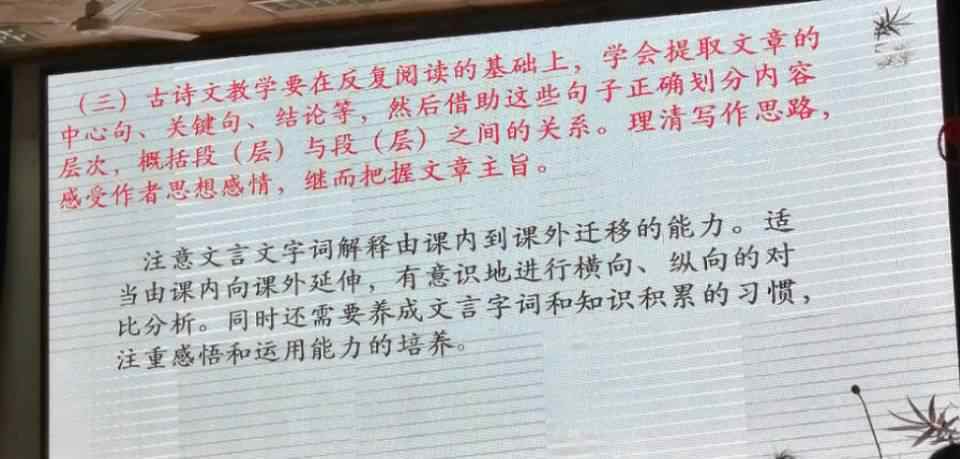 （三）古诗文教学要在反复阅读的基础上，学会提取文章的
中心句、关键句、结论等，然后借助这些句子正确划分内容
层次，概括段（层）与段（层）之间的关系。理清写作思路，
感受作者思想感情，继而把握文章主旨。
注意文言文字词解释由课内到课外迁移的能力。适
当由课内向课外延伸，有意识地进行横向、纵向的对
比分析。同时还需要养成文言字词和知识积累的习惯，
注重感悟和运用能力的培养。